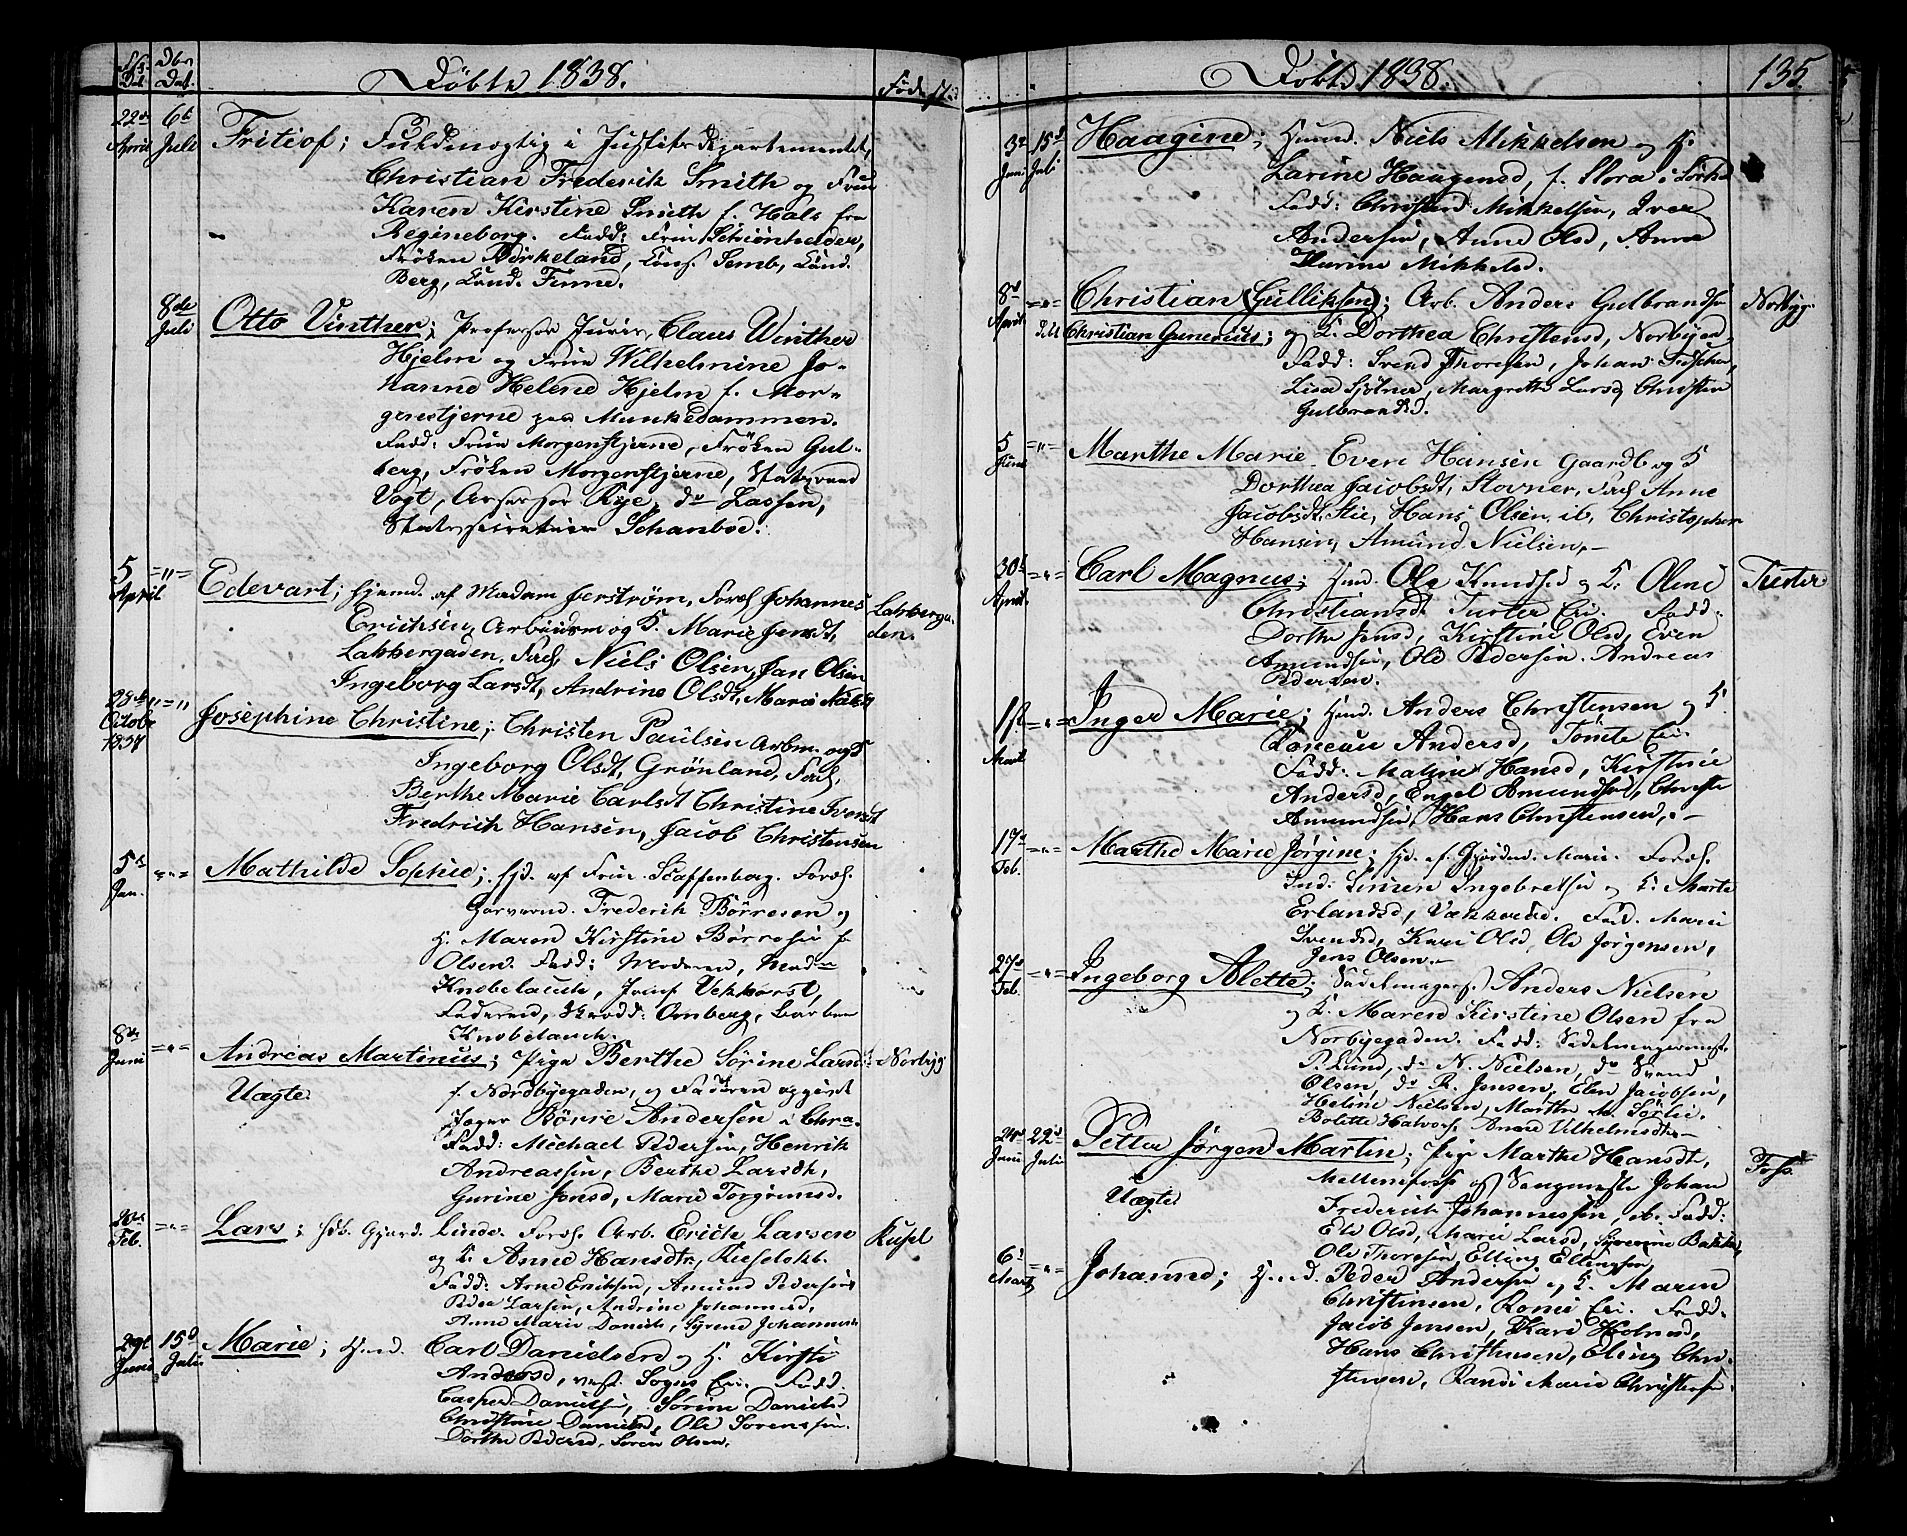 Døbte 1838.
Føds. Dat. Dbs Dat. Fødest.
22de April 6te Juli
Fritiof; Fuldmægtig i Justitsdepartementet,
Christian Frederik Smith og Frue
Karen Kirstine Smith f. Hals fra
Regineborg. Fadd: Frue Schiønhelder,
Frøken Birkeland, Cons. Semb, Cand.
Berg, Cand. Finne.
8de Juli
Otto Vinther; Professor Juris, Claus Winther
Hjelm og Frue Wilhelmine Jo-
hanne Helene Hjelm f. Mor-
genstjerne paa Munkedammen.
Fadd: Frue Morgenstjerne, Frøken Gul-
berg, Frøken Morgenstjerne, Statsraad
Vogt, Assessor Rye, do Lassen,
Statssecretair Schanboe.
5 April ="=
Edevart; hjemd. af Madam Jerstrøm, Foræl Johannes
Erichsen, Arbeidsm og K. Marie Jensdt,
Lakkergaden, Fad, Niels Olsen, Jan Olsen
Ingeborg Larsdt, Andrine Olsdt, Marie
Lakkerga-
den.
28de Octobr 1837 "="
Josephine Christine; Christen Paulsen Arbm og K
Ingeborg Olsdt, Grønland, Fad,
Berthe Marie Carlsdt Christine Iversdt
Fredrich Hansen, Jacob Christensen
5te Jan. ="=
Mathilde Sophie; hjd. af Frue Staffenberg. Foræl.
Garversvd. Frederik Børresen og
H. Maren Kirstine Børresen f.
Olsen. Fadd: Moderen, Mad
Knobelauch, Josef Vekhorst,
Faderen, Ornberg, Barbra
Knobelauch.
8de Juni ="=
Andreas Martinus; Pige Berthe Sørine Larsd
f. Nordbyegaden, og Faderen opgivet
Uægte.
Jæger Børre Andersen i Chra.
Fadd: Michael Pedersen, Henrik
Andreassen, Berthe Larsdtr,
Gurine Jensd, Marie Torgrimsd.
Norbyg
Feb. ="=
Lars; hdb. Gjord. Linde. Foræl. Arb. Erich Larsen
og K. Anne Hansdtr, Kuselokb.
Fadd: Arne Eriksen, Amund Pedersen
Peder Larsen, Andrine Johannesd,
Anne Marie Danielsd, Syrene Johannesd
Kusel
29de Juni 15d Juli
Marie; Hmd. Carl Danielsen og H. Kirsti
Andersd, vest. Sogns Eie. Fadd.
Casper Danielsen, Sørine Danielsd
Christine Danielsd, Ole Sørensen
Dorthe Pedersd. Søren Olsen.
Døbte 1838.
135.
3d Juni 15d Juli
Haagine; Huusmd. Niels Mikkelsen og H.
Larine Haagensd, f. Flora i Sørkd
Fadd: Christian Mikkelsen, Iver
Andersen, Anne Olsd, Anne
Thurine Mikkelsd.
8d April ="=
Christian (Gulliksen); Arb. Anders Gulbrands
Christian Gunerius; og K. Dorthea Christensd, Norbyend
Fadd: Svend Thoresen, Johan Fischer,
Lisa Sjølner, Margrethe Larsd, Christen
Gulbrandsd.
Norbyg
5 Juni ="=
Marthe Marie Even Hansen Gaardb og K
Dorthea Jacobsdt, Stovner, Fad, Anne
Jacobsdt, Stie, Hans Olsen, ib, Christopher
Hansen, Amund Nielsen,
30te April ="=
Carl Magnus; Hmd. Ole Knudsen og K: Oline
Christiansdt Turter Eie. Fadd:
Dorthe Jensd, Kirstine Olsd, Even
Amundsen, Ole Pedersen. Andreas
Pedersen.
Turter
1st Mai ="=
Inger Marie; Hmd. Anders Christensen og K
Andersd, Tømte Eie.
Fadd: Maline Hansd, Kirstine
Andersd, Engel Amundsen, Christen
Amundsen, Hans Christensen,
17de Feb. ="=
Marthe Marie Jørgine; hjd. af Gjordm. Marie. Foræl.
Ind. Simen Ingebretsen og K: Marte
Erlandsd, Vækkerøe. Fad. Marie
Svendsd, Kari Olsd, Ole Jørgensen,
Jens Olsen.
27de Feb. ="=
Ingeborg Alette; Sadelmagers. Anders Nielsen
og K. Maren Kirstine Olsen fra
Norbyegaden. Fadd: Sadelmagermest
P. Lund, do N. Nielsen, do Svend
Olsen, do R. Jensen, Elen Jacobsen,
Heline Nielsen, Marthe M. Sørlie.
Bolette Halvors, Anne Vilhelmsdtr.
24de Juni 22d Juli
Petter Jørgen Martin; Pige Marthe Hansdt,
Mellemfoss og Saugmester Johan
Uægte.
Frederich Johannessen, ib. Fadd:
Eli Olsd, Marie Larsd, Syverine Bakke
Ole Thoresen, Elling Ellingsen,
Foss.
6d Marts ="=
Johanne; Hmd. Peder Andersen og K. Maren
Christensen, Ronei Eie. Fadd.
Jacob Jensen, Kari Holmsd,
Hans Christensen, Eling Chri-
stensen, Randi Marie Christens.